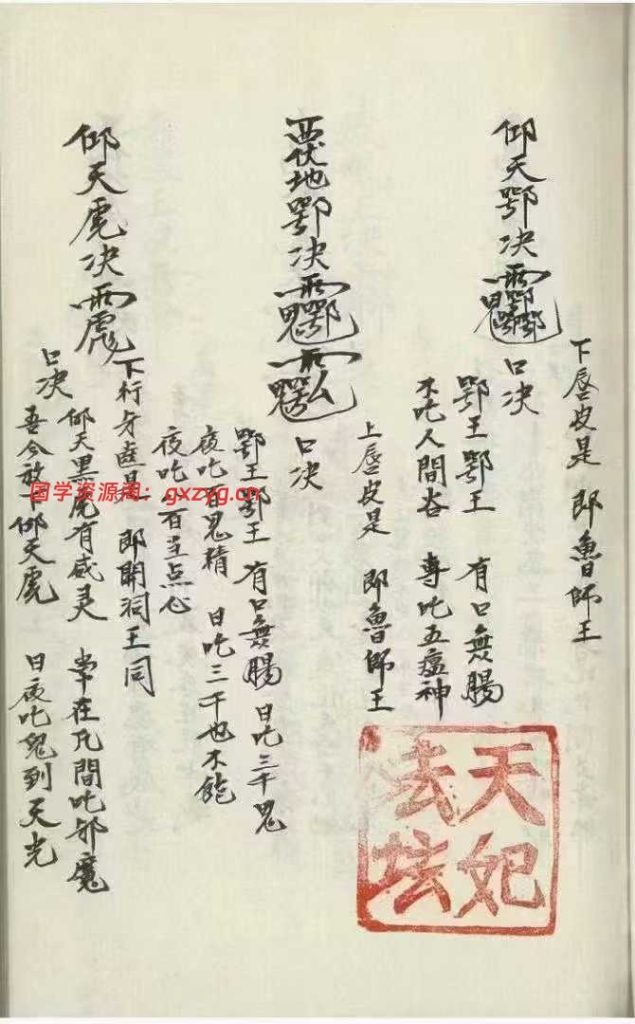 下唇皮是 即魯師王
仰天鄂决
口决
鄂王鄂王 有口無腸
不吃人間谷 專吃五瘟神
上唇皮是 即魯師王
西伏地鄂决
口决
鄂王鄂王 有口無腸 日吃三千鬼
夜吃百鬼精 日吃三千也不飽
夜吃八百呈点心
下行牙齒是 即開洞王同
仰天虎决
口决
仰天黑虎有威灵 常在凡間吃邪魔
吾今放下仰天虎 日夜吃鬼到天光
天妃
法坛
国学资源网：gxzyg.cn